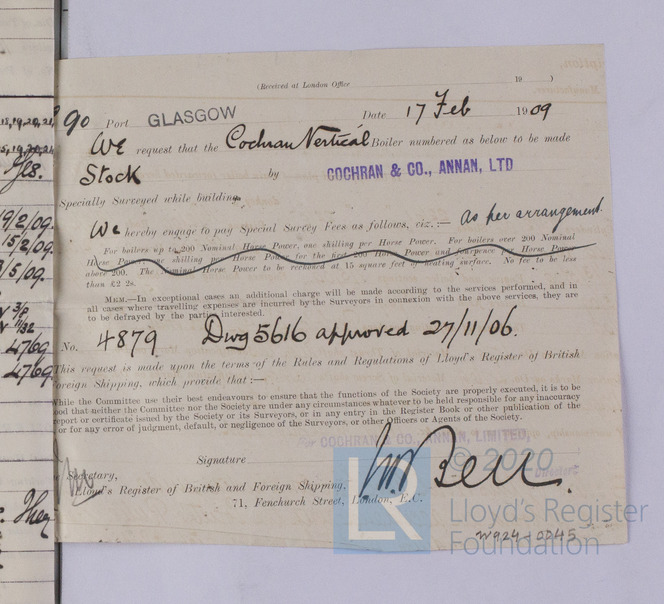 (Received at London Office 19 )
90 Port GLASGOW Date 17 Feb 1909
We request that the Cochran Vertical Boiler numbered as below to be made
Stock by COCHRAN & CO., ANNAN, LTD
Specially Surveyed while building.
We hereby engage to pay Special Survey Fees as follows, viz.:— As per arrangement
For boilers up to 200 Nominal Horse Power, one shilling per Horse Power. For boilers over 200 Nominal
Horse Power one shilling per Horse Power for the first 200 Horse Power and fourpence per Horse Power
above 200. The Nominal Horse Power to be reckoned at 15 square feet of heating surface. No fee to be less
than £2 2s.
MEM.—In exceptional cases an additional charge will be made according to the services performed, and in
all cases where travelling expenses are incurred by the Surveyors in connexion with the above services, they are
to be defrayed by the parties interested.
No. 4879 Dwg 5616 approved 27/11/06.
This request is made upon the terms of the Rules and Regulations of Lloyd's Register of British
Foreign Shipping, which provide that:—
While the Committee use their best endeavours to ensure that the functions of the Society are properly executed, it is to be
ood that neither the Committee nor the Society are under any circumstances whatever to be held responsible for any inaccuracy
report or certificate issued by the Society or its Surveyors, or in any entry in the Register Book or other publication of the
or for any error of judgment, default, or negligence of the Surveyors, or other Officers or Agents of the Society.
COCHRAN & CO., ANNAN, LIMITED,
Signature
Directors
Secretary,
Lloyd's Register of British and Foreign Shipping,
71, Fenchurch Street, London, E.C.
© 2020
LR
Lloyd's Register
Foundation
W924-0045
Yes.
19/2/09.
15/2/09.
/5/09.
4769
4769